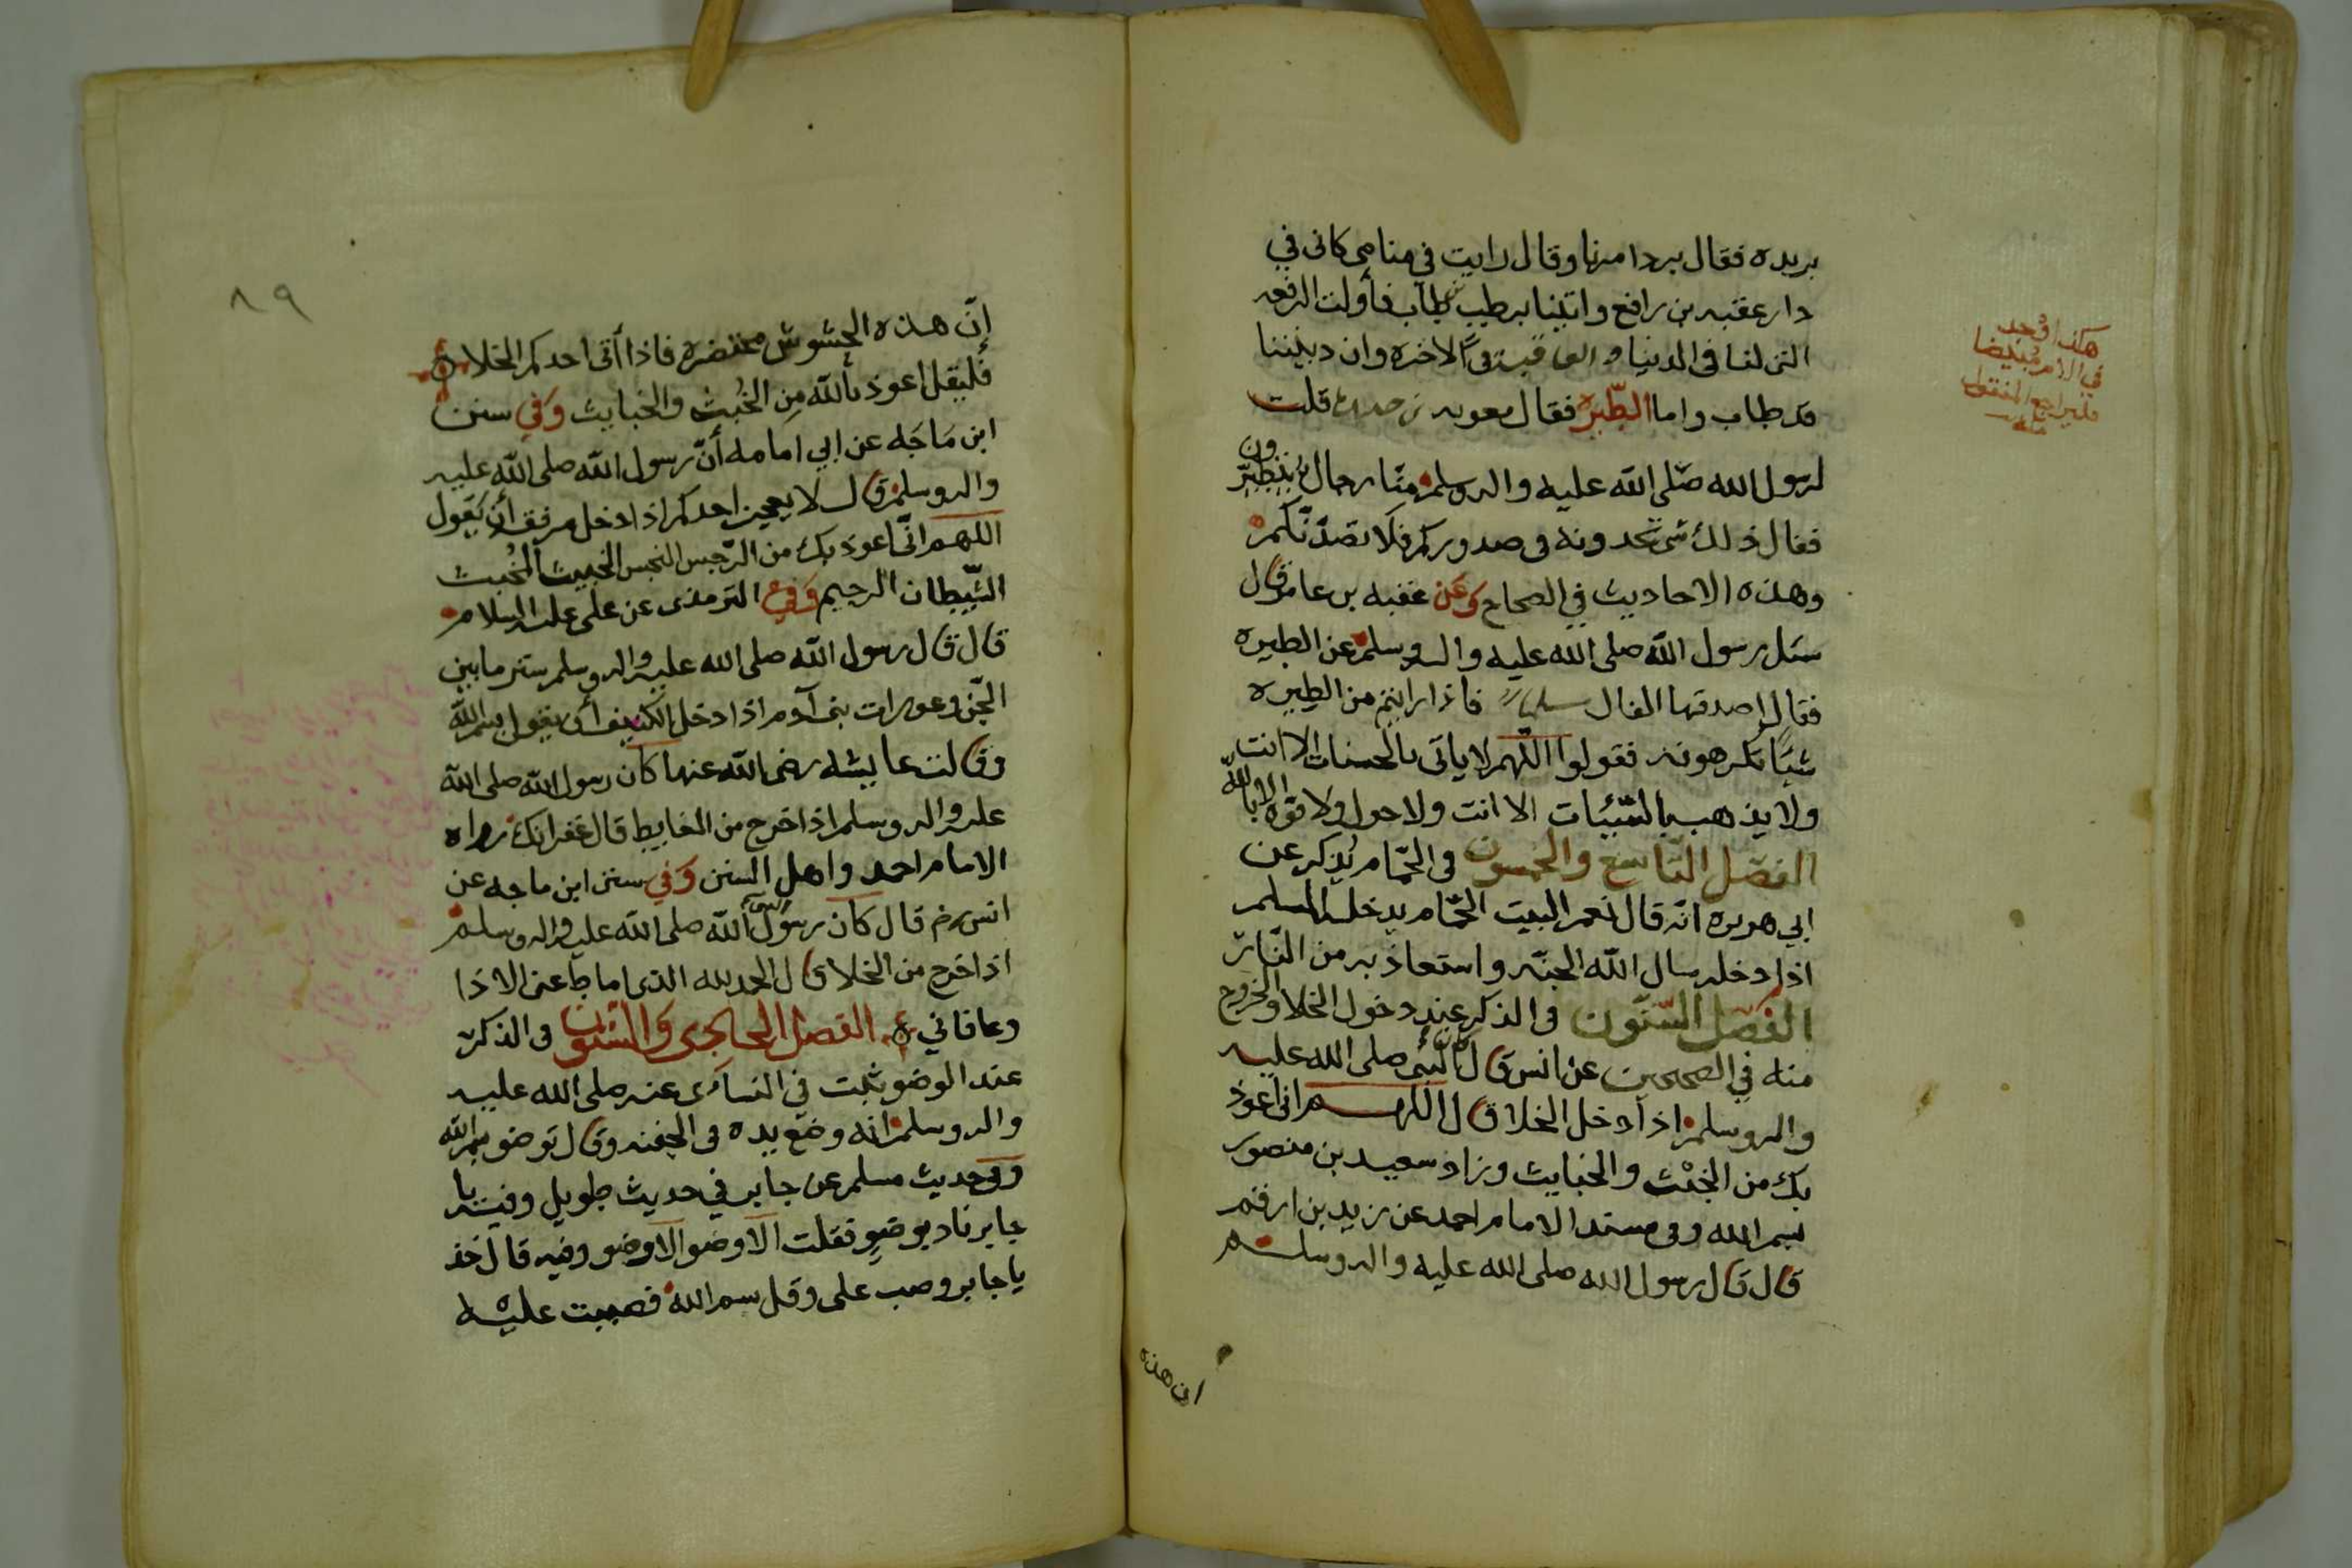 بريده فقال بردامرنا وقال رايت في منامي كاني في
دار عقبه بن رافع واتينا برطب طاب فأولت الرفعه
التي لنا في الدنيا و العاقبة في الاخره وان ديننا
قد طاب واما الطيره فقال معويه بن قلت
لرسول الله صلى الله عليه واله وسلم منا رجال يتطيرون
فقال ذلك شي تجدونه في صدوركم فلا تصدنكم
وهذه الاحاديث في الصحاح وعن عقبه بن عامر قال
سئل رسول الله صلى الله عليه واله وسلم عن الطيره
فقال اصدقها الفال فاذا رايتم من الطيره
شيئا تكرهونه فقولوا اللهم لا ياتي بالحسنات الا انت
ولا يذهب بالسيئات الا انت ولا حول ولا قوة الا بالله
الفصل التاسع والخمسون في الحمام يذكر عن
ابي هريره انه قال نعم البيت الحمام يدخله المسلم
اذا دخله سال الله الجنه واستعاذ به من النار
الفصل الستون في الذكر عند دخول الخلا والخروج
منه في الصحيحين عن انس قال كان النبي صلى الله عليه
واله وسلم اذا دخل الخلا قال اللهم اني اعوذ
بك من الخبث والخبايث وزاد سعيد بن منصور
بسم الله وفي مسند الامام احمد عن زيد بن ارقم
قال قال رسول الله صلى الله عليه واله وسلم
ان هذه
هكذا وجد
في الام مبيضا
فليراجع المنقول
منه
٨٩
إن هذه الحشوش محتضره فاذا أتى احدكم الخلا
فليقل اعوذ بالله من الخبث والخبايث وفي سنن
ابن ماجه عن ابي امامه أن رسول الله صلى الله عليه
واله وسلم قال لا يعجز احدكم اذا دخل مرفقه أن يقول
اللهم اني اعوذ بك من الرجس النجس الخبيث المخبث
الشيطان الرجيم وفي الترمذي عن علي عليه السلام
قال قال رسول الله صلى الله عليه واله وسلم ستر ما بين
الجن وعورات بني آدم اذا دخل الكنيف أن يقول بسم الله
وقالت عايشه رضي الله عنها كان رسول الله صلى الله
عليه واله وسلم اذا خرج من الغايط قال غفرانك رواه
الامام احمد واهل السنن وفي سنن ابن ماجه عن
انس رض قال كان رسول الله صلى الله عليه واله وسلم
اذا خرج من الخلا قال الحمد لله الذي اماط عني الاذا
وعافاني الفصل الحادي والستون في الذكر
عند الوضو ثبت في النسائي عنه صلى الله عليه
واله وسلم انه وضع يده في الجفنه وقال توضو بسم الله
وفي حديث مسلم عن جابر في حديث طويل وفيه يا
جابر ناد بوضو فقلت الا وضو الا وضو وفيه قال خذ
يا جابر وصب علي وقل بسم الله فصببت عليه